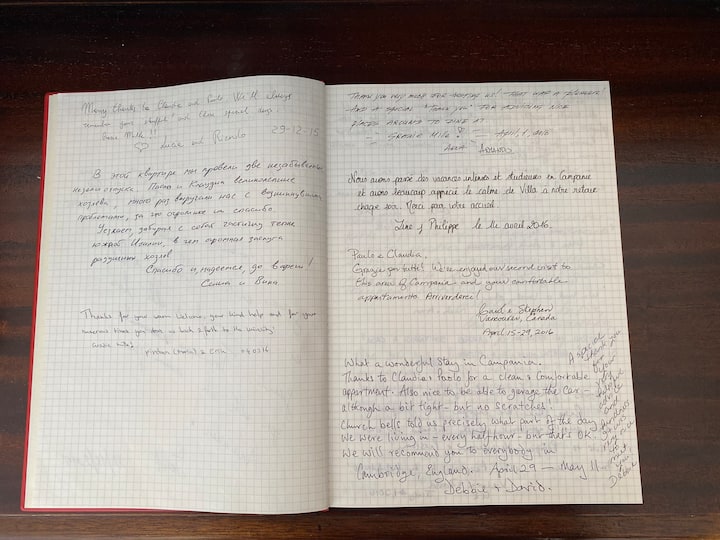 Many thanks to Claudia and Paolo. We'll always
remember your and these special days.
Grazie Mille!!
♡ Lucie and 29-12-15
В этой квартире мы провели две незабываемые
недели отпуска. Паоло и Клаудия великолепные
хозяева, много раз выручали нас с возникнувшими
проблемами, за что огромное им спасибо.
Уезжаем, забирая с собой частичку тепла
южной Италии, в чем огромная заслуга
радушных хозяев
Спасибо и, надеемся, до встречи!
Семья и
Thanks for your warm welcome, your kind help and for your
numerous times you drove us back & forth to the university
Grazie mille!
THANK YOU VERY MUCH FOR HOSTING US! THAT WAS A PLEASURE!
AND A SPECIAL "THANK YOU" FOR ADVISING NICE
PLACES AROUND TO DINE AT
GRAZIE MILLE! APRIL, 2016
Nous avons passé des vacances intenses et studieuses en Campanie
et avons beaucoup apprécié le calme de Villa à notre retour
chaque soir. Merci pour votre accueil.
Line & Philippe le 14 avril 2016.
Paolo e Claudia,
Grazie per tutto! We've enjoyed our second visit to
this area of Campania and your comfortable
appartamento. Arriverderci!
Gail & Stephen
Vancouver, Canada
April 15-29, 2016
What a wonderful stay in Campania.
Thanks to Claudia & Paolo for a clean & comfortable
appartment. Also nice to be able to garage the car -
although a bit tight - but no scratches!
Church bells told us precisely what part of the day
we were living in - every half hour - but that's OK.
We will recommend you to everybody in
Cambridge, England. April 29 - May 11
Debbie & David.
A special
thank you